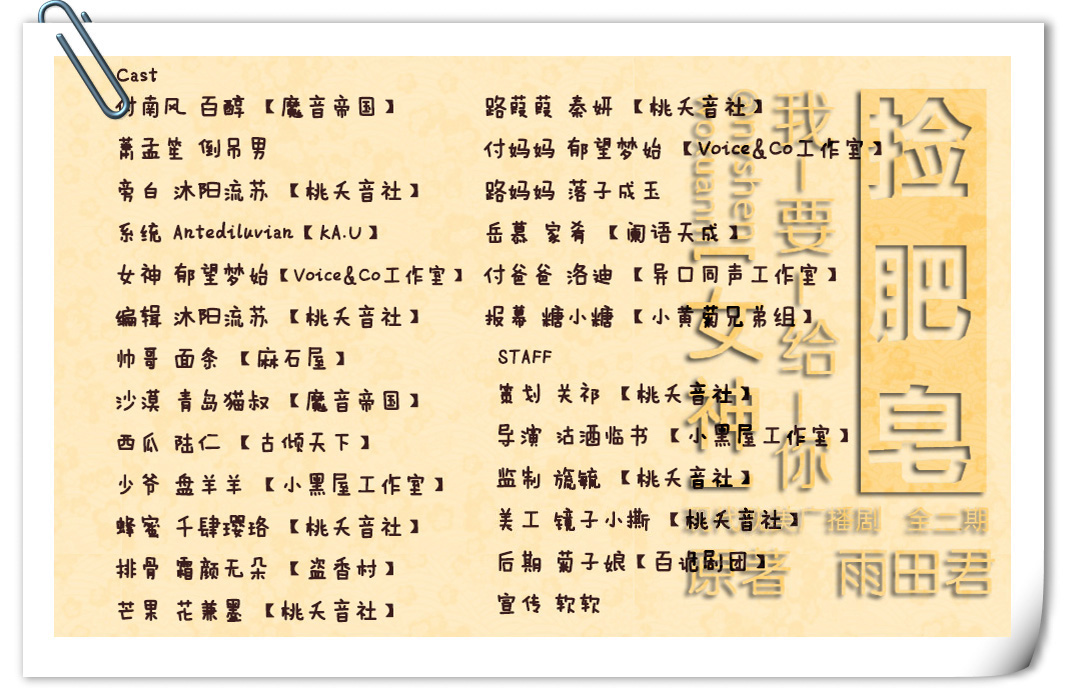 Cast
付南风 百醇 【魔音帝国】
萧孟笙 倒吊男
旁白 沐阳流苏 【桃夭音社】
系统 Antediluvian【KA.U】
女神 郁望梦始【Voice&Co工作室】
编辑 沐阳流苏 【桃夭音社】
帅哥 面条 【麻石屋】
沙漠 青岛猫叔 【魔音帝国】
西瓜 陆仁 【古倾天下】
少爷 盘羊羊 【小黑屋工作室】
蜂蜜 千肆璎珞 【桃夭音社】
排骨 霜颜无朵 【盗香村】
芒果 花兼墨 【桃夭音社】
路葭葭 秦妍 【桃夭音社】
付妈妈 郁望梦始 【Voice&Co工作室】
路妈妈 落子成玉
岳慕 家肴 【阑语天成】
付爸爸 洛迪 【异口同声工作室】
报幕 糖小糖 【小黄菊兄弟组】
STAFF
策划 关祁 【桃夭音社】
导演 沽酒临书 【小黑屋工作室】
监制 旒毓 【桃夭音社】
美工 镜子小撕 【桃夭音社】
后期 菊子娘【百诡剧团】
宣传 软软
捡肥皂
我—要—给—你
【女神】
广播剧 全二期
原著 雨田君